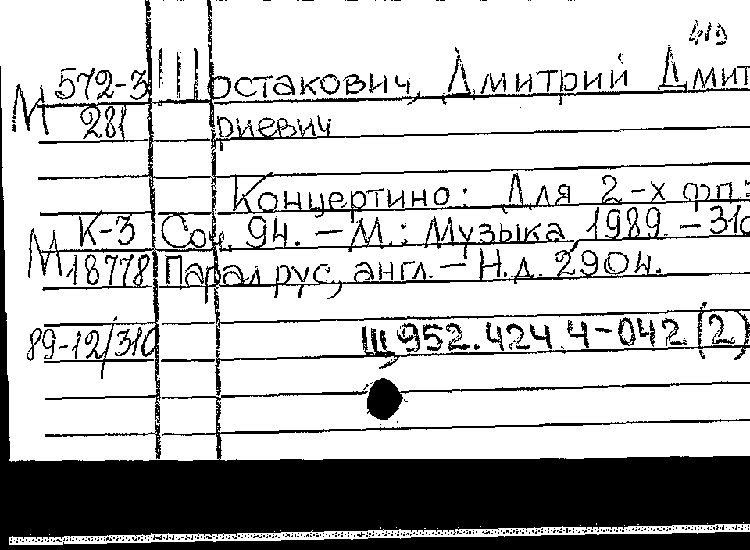 419
М 572-3 Шостакович, Дмитрий Дмит
281 риевич
Концертино: Для 2-х фп.:
М К-3 Соч. 94. – М.: Музыка, 1989. – 31с
18778 Парал рус, англ. – Н.д. 2904.
89-12/310 Щ 952.424.4-042 (2)